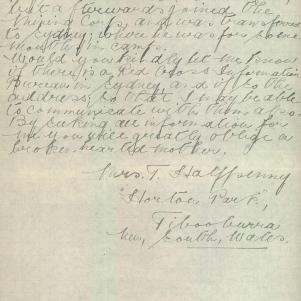 but afterwards joined the
Mining Corps, and was transferred
to Sydney; where he was for some
months in camp.
Would you kindly let me know
if there is a Red Cross Information
Bureau in Sydney and if so the
address; so that I may be able
to communicate with them also.
By seeking all information for
me you will greatly oblige a
broken hearted mother.
Mrs. T. Halfpenny
Horton Park,
Tibooburra
New, South, Wales.